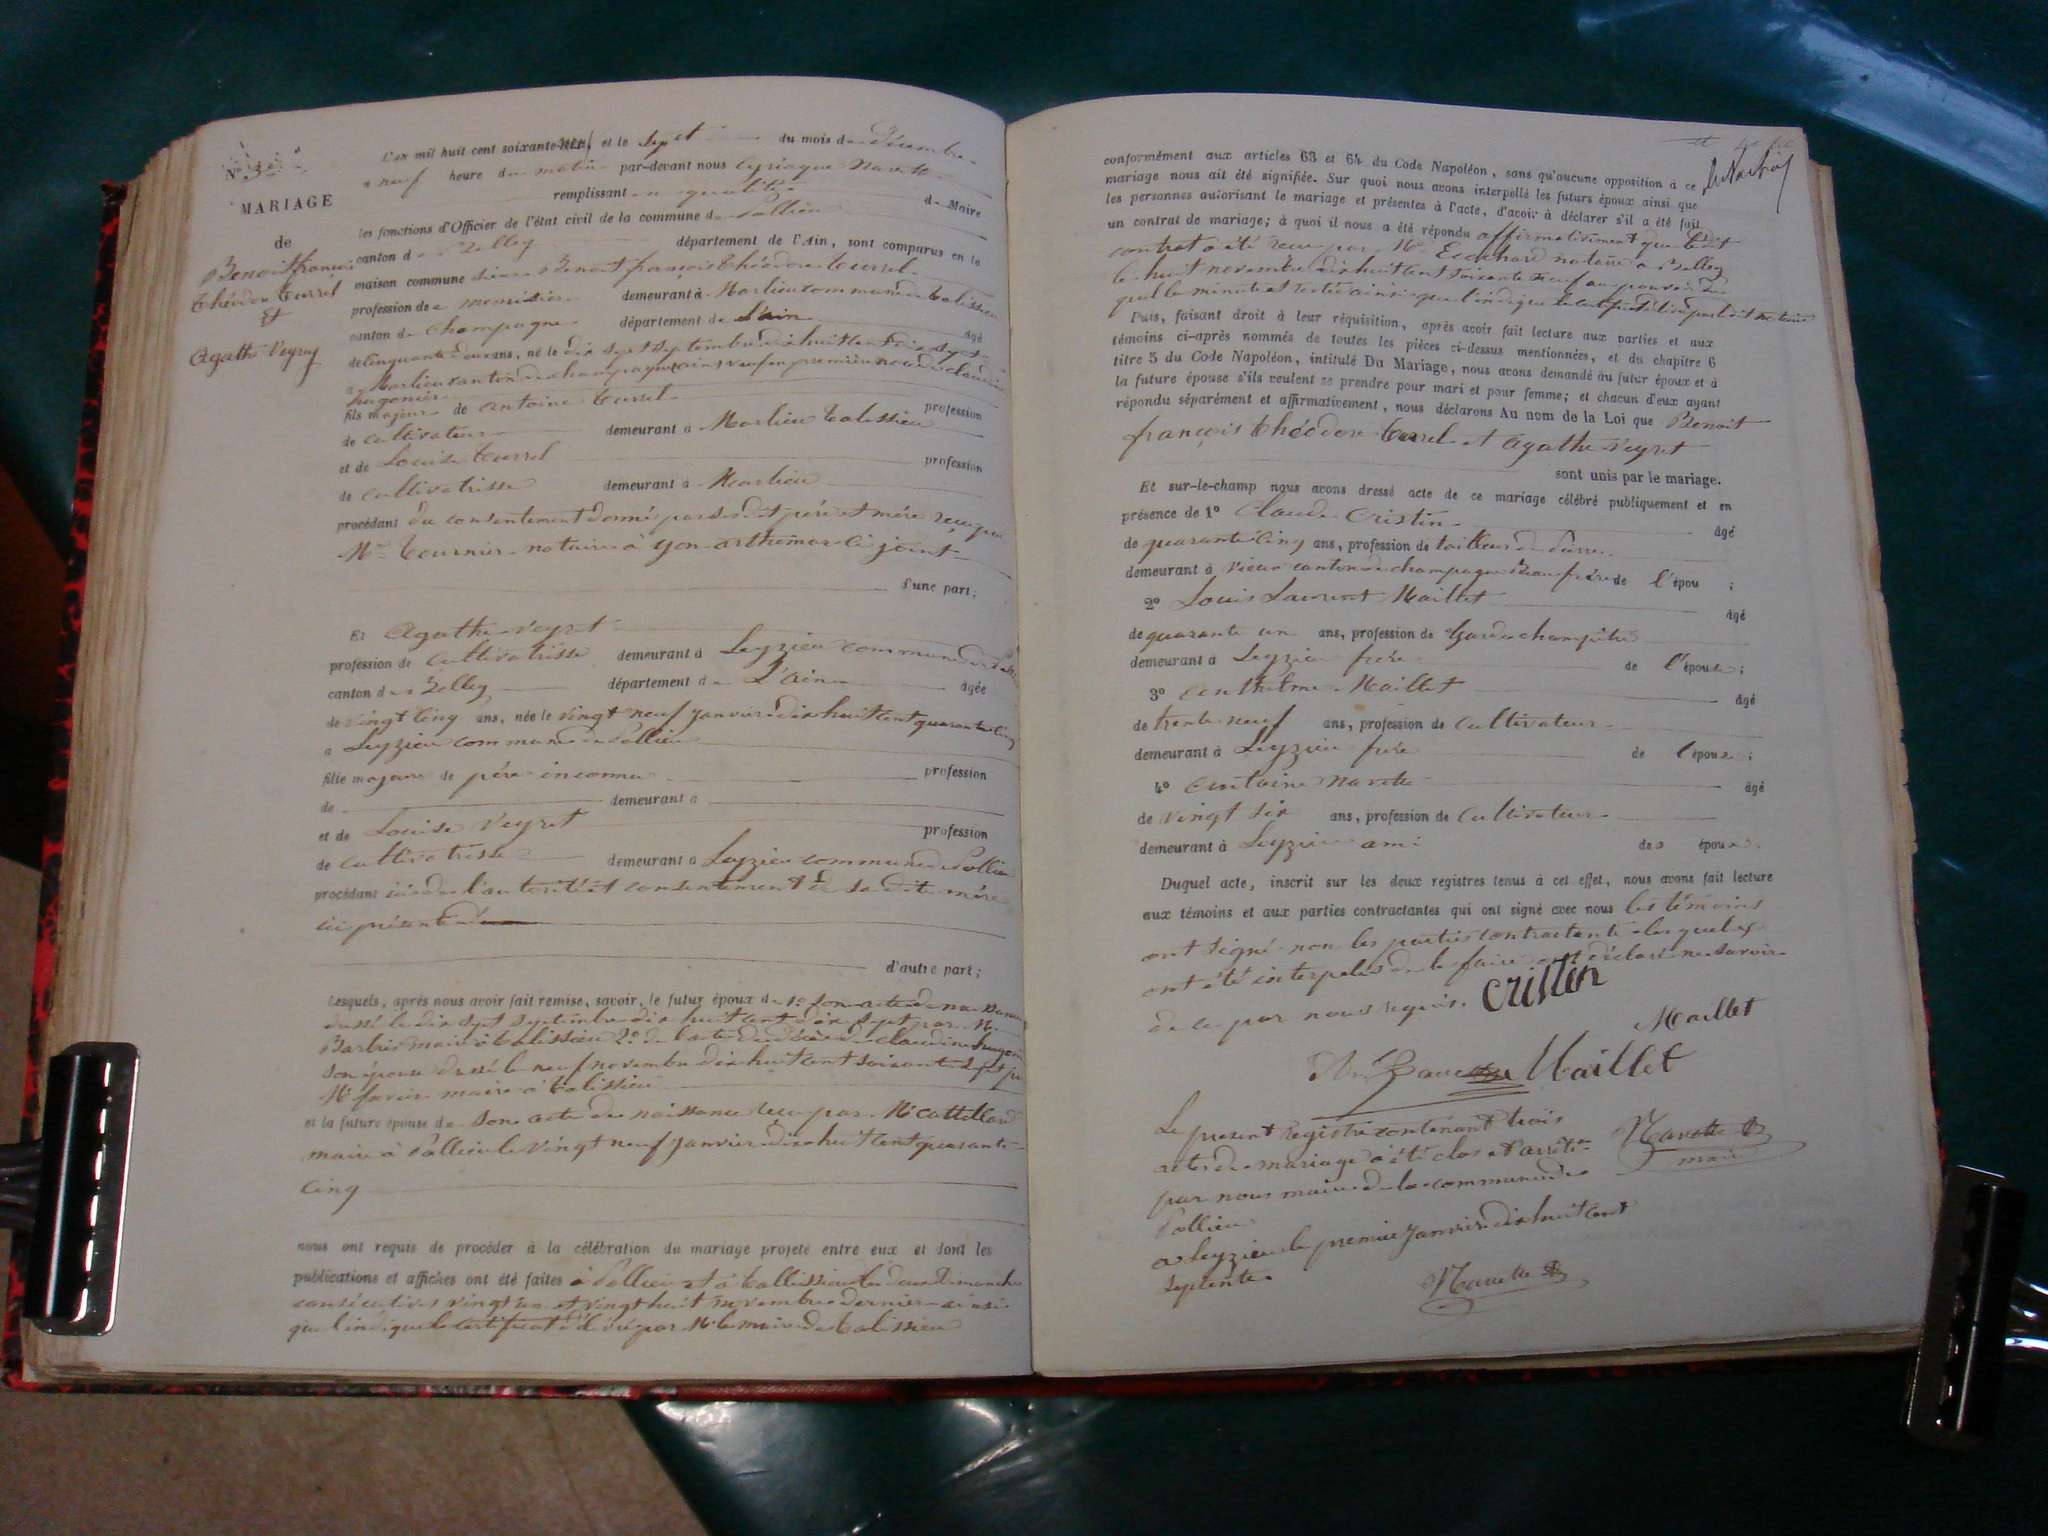 No 3
MARIAGE
de
Benoit françois
théodore turrel
Et
Agathe Veyret
L'an mil huit cent soixante-neuf et le sept du mois de Décembre
a neuf heure du matin par-devant nous Cyriaque Navette
remplissant en qualité de Maire
les fonctions d'Officier de l'état civil de la commune de Pollieu
canton de Belley département de l'Ain, sont comparus en la
maison commune sieur Benoit françois théodore turrel
profession de menuisier demeurant à Marlieu commune de talissieu
canton de Champagne département de L'ain âgé
de cinquante deux ans, né le dix sept septembre dix huit cent dix sept
a Marlieu canton de champagne (ain) veuf en première noce de claudine
hugonier
fils majeur de antoine turrel profession
de cultivateur demeurant à Marlieu talissieu
et de Louise turrel profession
de cultivatrisse demeurant à Marlieu
procédant du consentement donné par sesdit père et mère reçu par
Me tournier notaire à yon artemar ci joint
d'une part;
Et Agathe Veyret
profession de cultivatrisse demeurant à Leyzieu commune de
canton de Belley département de L'ain âgée
de vingt cinq ans, née le vingt neuf janvier dix huit cent quarante cinq
a Leyzieu commune de Pollieu
fille majeure de père inconnu profession
de demeurant a
et de Louise Veyret profession
de cultivatrisse demeurant à Leyzieu commune de Pollieu
procédant ici de l'autorité et consentement de sadite mère
ici présente
d'autre part;
Lesquels, après nous avoir fait remise, savoir, le futur époux de 1o son acte de naissance
dressé le dix sept septembre dix huit cent dix sept par Mr
Barbier maire à talissieu 2o de l'acte de décès de claudine hugonier
son épouse dressé le neuf novembre dix huit cent soixante sept par
Mr favier maire à talissieu
et la future épouse de son acte de naissance reçu par Mr cattelland
maire à Pollieu le vingt neuf janvier dix huit cent quarante
cinq
nous ont requis de procéder à la célébration du mariage projeté entre eux et dont les
publications et affiches ont été faites à Pollieu et à tallissieu les deux dimanche
consécutives vingt un et vingt huit novembre dernier ainsi
que l'indique le certificat délivré par Mr le maire de talissieu
conformément aux articles 63 et 64 du Code Napoléon, sans qu'aucune opposition à ce
mariage nous ait été signifiée. Sur quoi nous avons interpellé les futurs époux ainsi que
les personnes autorisant le mariage et présentes à l'acte, d'avoir à déclarer s'il a été fait
un contrat de mariage; à quoi il nous a été répondu affirmativement que ledit
contrat a été reçu par Me notaire à Belley
le huit novembre dix huit cent soixante neuf au pouvoir du
quel la minute est restée ainsi que l'indique le certificat délivré par ledit notaire
Puis, faisant droit à leur réquisition, après avoir fait lecture aux parties et aux
témoins ci-après nommés de toutes les pièces ci-dessus mentionnées, et du chapitre 6
titre 5 du Code Napoléon, intitulé Du Mariage, nous avons demandé au futur époux et à
la future épouse s'ils veulent se prendre pour mari et pour femme; et chacun d'eux ayant
répondu séparément et affirmativement, nous déclarons Au nom de la Loi que Benoit
françois théodore turrel et Agathe Veyret
sont unis par le mariage.
Et sur-le-champ nous avons dressé acte de ce mariage célébré publiquement et en
présence de 1o Claude Cristin âgé
de quarante cinq ans, profession de tailleur de pierre
demeurant à Vieu canton de champagne Beau frère de l'épou ;
2o Louis Laurent Maillet âgé
de quarante un ans, profession de Garde champêtre
demeurant à Leyzieu frère de l'épouse;
3o Anthelme Maillet âgé
de trente neuf ans, profession de cultivateur
demeurant à Leyzieu frère de l'épouse;
4o Antoine Navette âgé
de vingt six ans, profession de cultivateur
demeurant à Leyzieu ami des époux.
Duquel acte, inscrit sur les deux registres tenus à cet effet, nous avons fait lecture
aux témoins et aux parties contractantes qui ont signé avec nous les témoins
ont signé non les parties contractante lesquelles
ont été interpelés de le faire ont déclaré ne savoir
de ce par nous requis. Cristin
Maillet
Maillet
Le present registre contenant trois
actes de mariage a été clos et arrêté
par nous maire de la commune de
Pollieu
a Leyzieu le premier janvier dix huit cent
septente
Navette
maire
Navette